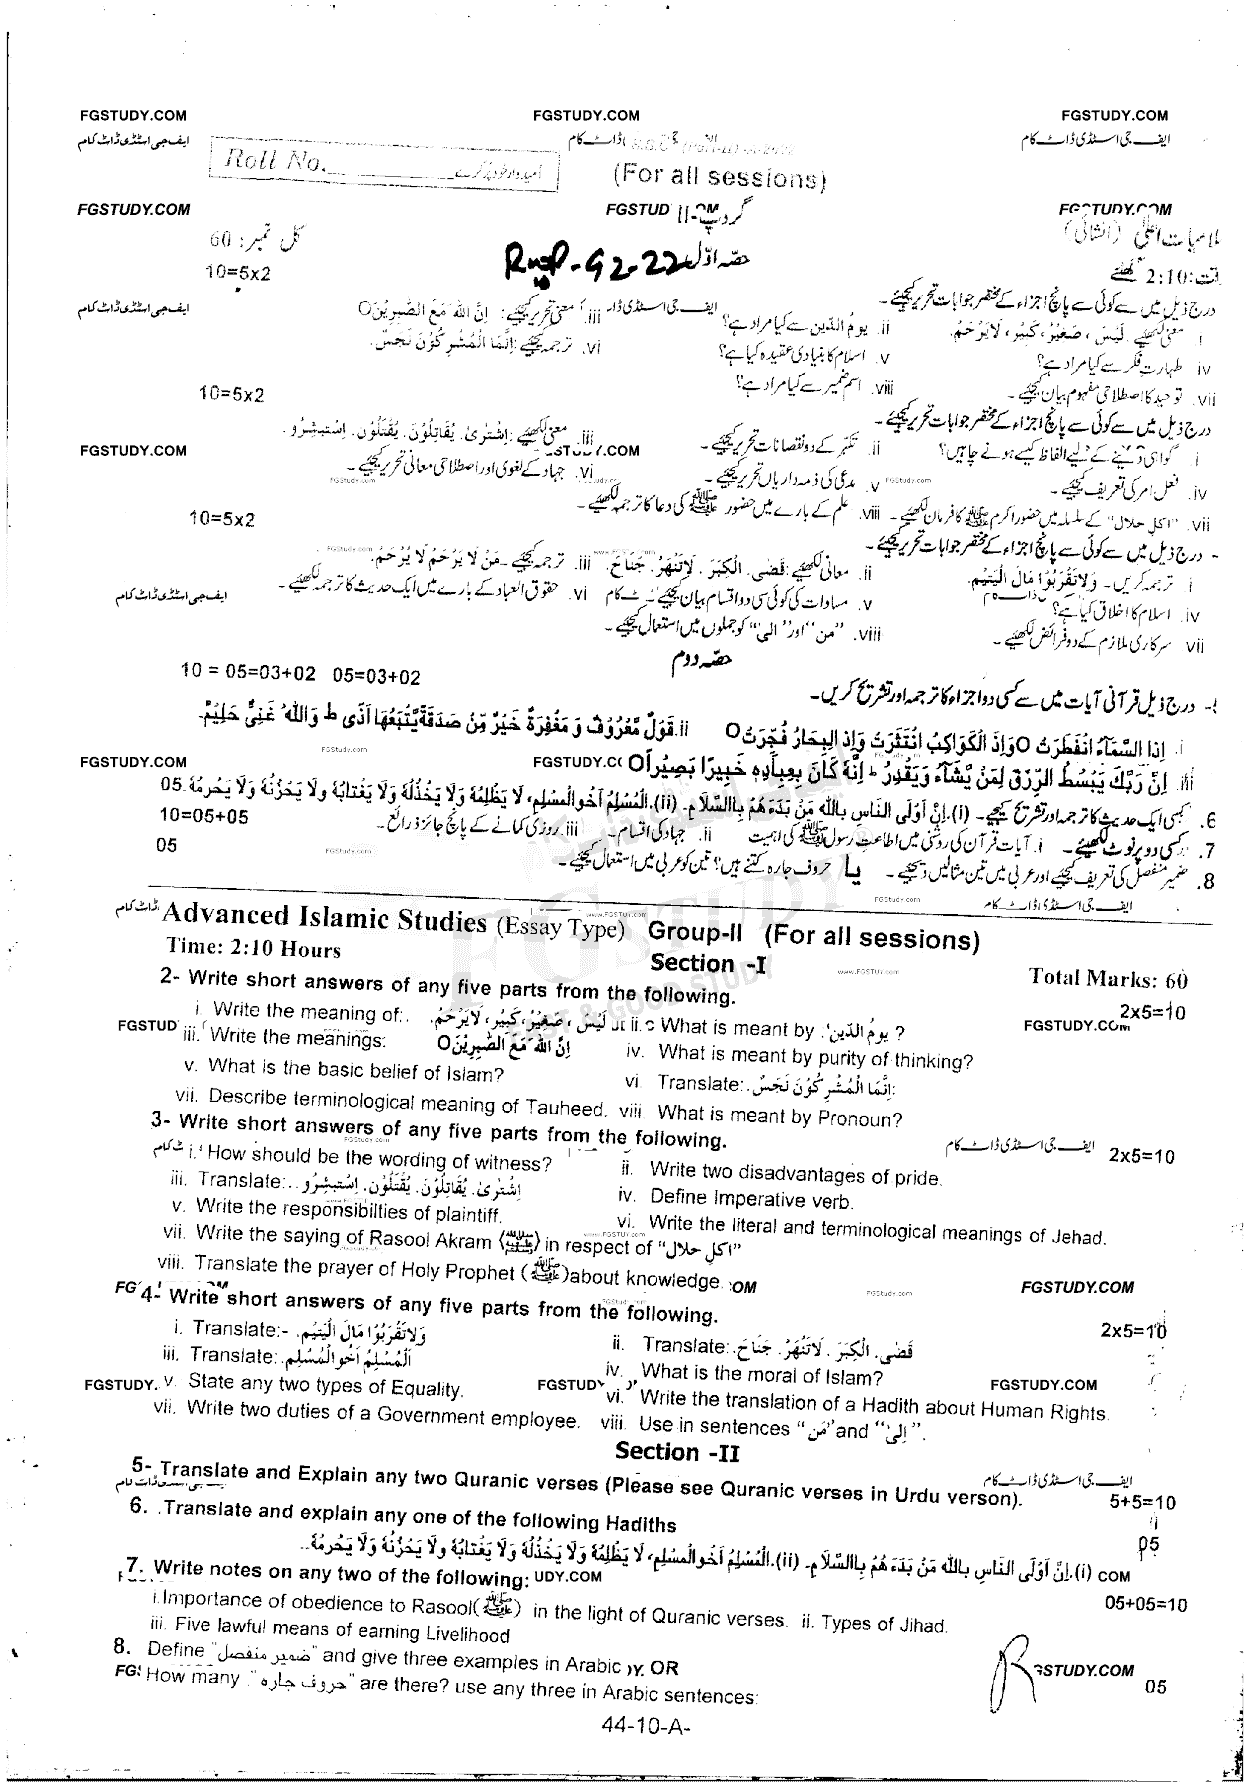 FGSTUDY.COM FGSTUDY.COM FGSTUDY.COM
ایف جی اسٹڈی ڈاٹ کام ڈاٹ کام ایف جی اسٹڈی ڈاٹ کام
Roll No. (For all sessions)
FGSTUDY.COM FGSTUD گروپ-II FGSTUDY.COM
(انشائی) کل نمبر: 60
حصہ اوّل 10=5x2
وقت: 2:10 گھنٹے
درج ذیل میں سے کوئی سے پانچ اجزاء کے مختصر جوابات تحریر کیجئے۔
i معنی لکھیے۔ لَیْسَ، صَغِیْر، کَبِیْر، لَایَرْحَمُ. ii. یومُ الدّین سے کیا مراد ہے؟ iii. معنی تحریر کیجئے: اِنَّ اللّٰہَ مَعَ الصّٰبِرِیْنَ O
iv طہارتِ فکر سے کیا مراد ہے؟ v. اسلام کا بنیادی عقیدہ کیا ہے؟ vi. ترجمہ کیجئے: اِنَّمَا الْمُشْرِکُوْنَ نَجَسٌ.
vii. توحید کا اصطلاحی مفہوم بیان کیجئے۔ viii. اسم ضمیر سے کیا مراد ہے؟
10=5x2
درج ذیل میں سے کوئی سے پانچ اجزاء کے مختصر جوابات تحریر کیجئے۔
i گواہی دینے کے لیے الفاظ کیسے ہونے چاہیں؟ ii تکبّر کے دو نقصانات تحریر کیجئے۔ iii. معنی لکھیے: اِشْتَریٰ. یُقَاتِلُوْنَ. یُقْتَلُوْنَ. اِسْتَبْشِرُو.
iv. فعل امر کی تعریف کیجئے۔ v. مدعی کی ذمہ داریاں تحریر کیجئے۔ vi. جہاد کے لغوی اور اصطلاحی معانی تحریر کیجئے۔
vii. "اکلِ حلال" کے سلسلہ میں حضور اکرم ﷺ کا فرمان لکھیے۔ viii. علم کے بارے میں حضور ﷺ کی دعا کا ترجمہ لکھیے۔
10=5x2
- درج ذیل میں سے کوئی سے پانچ اجزاء کے مختصر جوابات تحریر کیجئے۔
i ترجمہ کریں۔ وَلَا تَقْرَبُوْا مَالَ الْیَتِیْمِ. ii معانی لکھیے: قَضٰی. الْکِبَرَ. لَاتَنْھَرْ. جَنَاحَ. iii. ترجمہ کیجئے۔ مَنْ لَا یَرْحَمُ لَا یُرْحَمُ.
iv. اسلام کا اخلاق کیا ہے؟ v. مساوات کی کوئی سی دو اقسام بیان کیجئے۔ vi حقوق العباد کے بارے میں ایک حدیث کا ترجمہ لکھیے۔
vii سرکاری ملازم کے دو فرائض لکھیے۔ viii. "من" اور "الیٰ" کو جملوں میں استعمال کیجئے۔
حصہ دوم
10 = 05=03+02 05=03+02
درج ذیل قرآنی آیات میں سے کسی دو اجزاء کا ترجمہ اور تشریح کریں۔
i. اِذَا السَّمَآءُ انْفَطَرَتْ O وَاِذَ الْکَوَاکِبُ انْتَثَرَتْ وَاِذِ الْبِحَارُ فُجِّرَتْ O ii. قَوْلٌ مَّعْرُوْفٌ وَ مَغْفِرَۃٌ خَیْرٌ مِّنْ صَدَقَۃٍ یَّتْبَعُھَا اَذًی ط وَاللّٰہُ غَنِیٌّ حَلِیْمٌ.
iii اِنَّ رَبَّکَ یَبْسُطُ الرِّزْقَ لِمَنْ یَّشَآءُ وَیَقْدِرُ ط اِنَّہٗ کَانَ بِعِبَادِہٖ خَبِیْرًا بَصِیْرًا O
6. کسی ایک حدیث کا ترجمہ اور تشریح کیجیے۔ (i). اِنَّ اَوْلَی النَّاسِ بِاللّٰہِ مَنْ بَدَءَ ھُمْ بِاالسَّلَامِ۔ (ii). اَلْمُسْلِمُ اَخُوالْمُسْلِمِ، لَا یَظْلِمُہٗ وَلَا یَخْذُلُہٗ وَلَا یَغْتَابُہٗ ولَا یَحْزُنُہٗ وَلَا یَحْرِمُہٗ. 05
7. کسی دو پر نوٹ لکھیئے۔ i. آیات قرآن کی روشنی میں اطاعت رسول ﷺ کی اہمیت ii جہاد کی اقسام۔ iii. روزی کمانے کے پانچ جائز ذرائع۔ 10=05+05
8. ضمیر منفصل کی تعریف کیجئے اور عربی میں تین مثالیں دیجئے۔ یا حروف جارہ کتنے ہیں؟ تین کو عربی میں استعمال کیجئے۔ 05
Advanced Islamic Studies (Essay Type) Group-II (For all sessions)
Time: 2:10 Hours Section -I Total Marks: 60
2- Write short answers of any five parts from the following. 2x5=10
i. Write the meaning of:. لَیْسَ، صَغِیْر، کَبِیْر، لَایَرْحَمُ. ii. What is meant by یومُ الدّین. ?
iii. Write the meanings: اِنَّ اللّٰہَ مَعَ الصّٰبِرِیْنَ O iv. What is meant by purity of thinking?
v. What is the basic belief of Islam? vi Translate:. اِنَّمَا الْمُشْرِکُوْنَ نَجَسٌ.
vii. Describe terminological meaning of Tauheed. viii. What is meant by Pronoun?
3- Write short answers of any five parts from the following. 2x5=10
i. How should be the wording of witness? ii. Write two disadvantages of pride.
iii. Translate:.. اِشْتَریٰ. یُقَاتِلُوْنَ. یُقْتَلُوْنَ. اِسْتَبْشِرُو. iv. Define Imperative verb.
v. Write the responsibilties of plaintiff. vi. Write the literal and terminological meanings of Jehad.
vii. Write the saying of Rasool Akram (ﷺ) in respect of "اکلِ حلال"
viii. Translate the prayer of Holy Prophet (ﷺ)about knowledge.
FGSTUDY.COM
4- Write short answers of any five parts from the following. 2x5=10
i. Translate:- وَلَا تَقْرَبُوْا مَالَ الْیَتِیْمِ. ii. Translate:. قَضٰی. الْکِبَرَ. لَاتَنْھَرْ. جَنَاحَ.
iii. Translate:. اَلْمُسْلِمُ اَخُوالْمُسْلِمِ. iv. What is the moral of Islam?
v. State any two types of Equality. vi. Write the translation of a Hadith about Human Rights.
vii. Write two duties of a Government employee. viii. Use in sentences "مَن" and "اِلیٰ".
Section -II
5- Translate and Explain any two Quranic verses (Please see Quranic verses in Urdu verson). 5+5=10
6. .Translate and explain any one of the following Hadiths 05
(i). اِنَّ اَوْلَی النَّاسِ بِاللّٰہِ مَنْ بَدَءَ ھُمْ بِاالسَّلَامِ۔ (ii). اَلْمُسْلِمُ اَخُوالْمُسْلِمِ، لَا یَظْلِمُہٗ وَلَا یَخْذُلُہٗ وَلَا یَغْتَابُہٗ ولَا یَحْزُنُہٗ وَلَا یَحْرِمُہٗ..
7. Write notes on any two of the following: 05+05=10
i.Importance of obedience to Rasool(ﷺ) in the light of Quranic verses. ii. Types of Jihad.
iii. Five lawful means of earning Livelihood
8. Define "ضمیر منفصل" and give three examples in Arabic OR
How many "حروف جارہ" are there? use any three in Arabic sentences: 05
44-10-A-